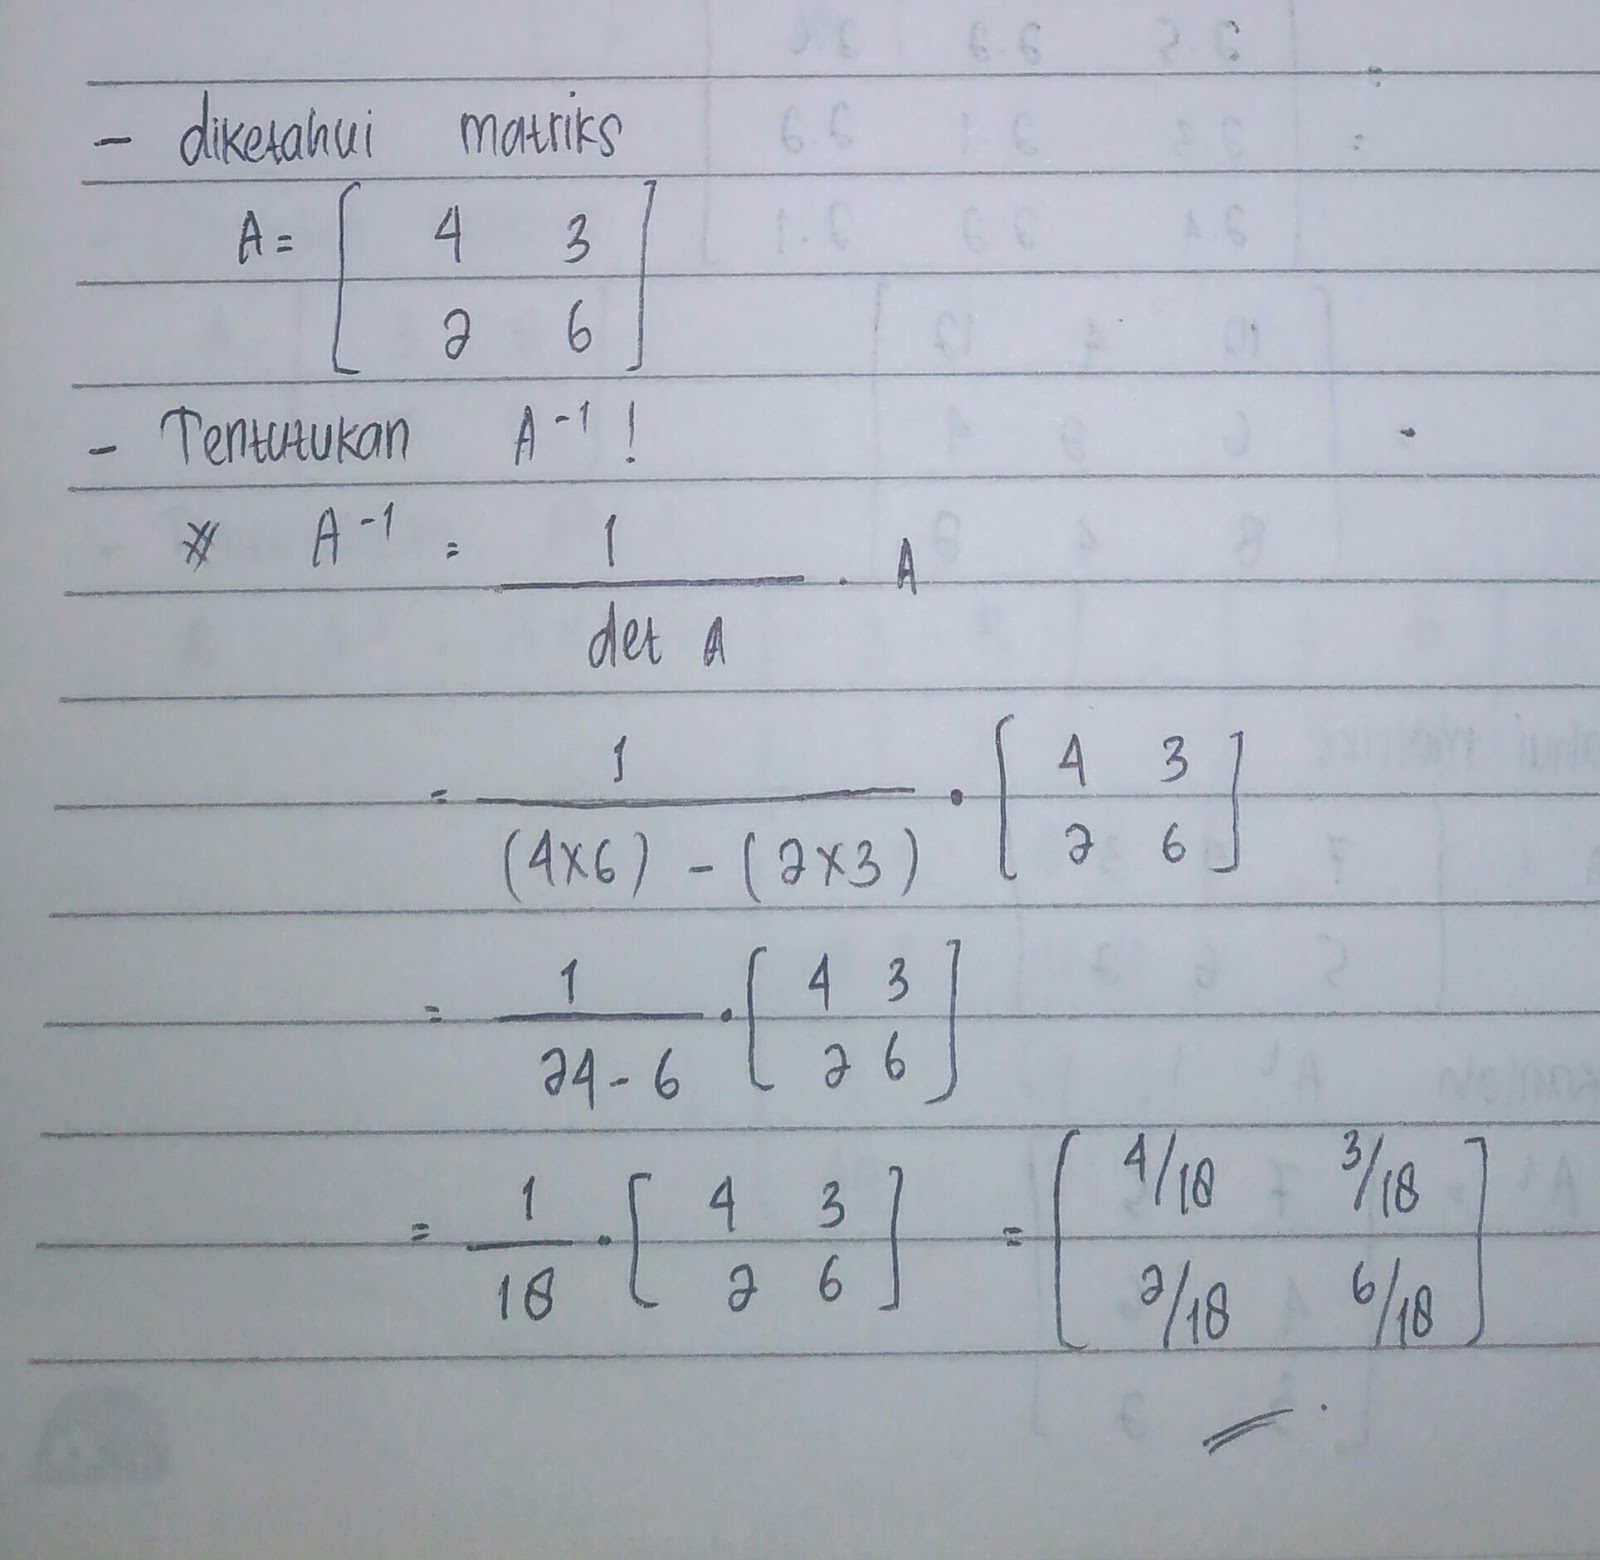 - diketahui matriks
A = [ 4 3
2 6 ]
- Tentutukan A⁻¹ !
* A⁻¹ = 1 / det A . A
= 1 / (4x6) - (2x3) . [ 4 3
2 6 ]
= 1 / 24 - 6 . [ 4 3
2 6 ]
= 1 / 18 . [ 4 3
2 6 ] = [ 4/18 3/18
2/18 6/18 ]